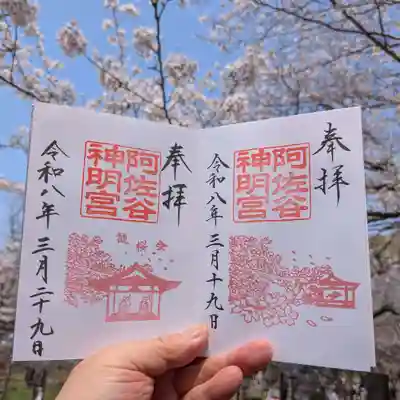 奉拝
阿佐谷
神明宮
令和八年 三月十九日
奉拝
阿佐谷
神明宮
観桜会
令和八年 三月二十九日